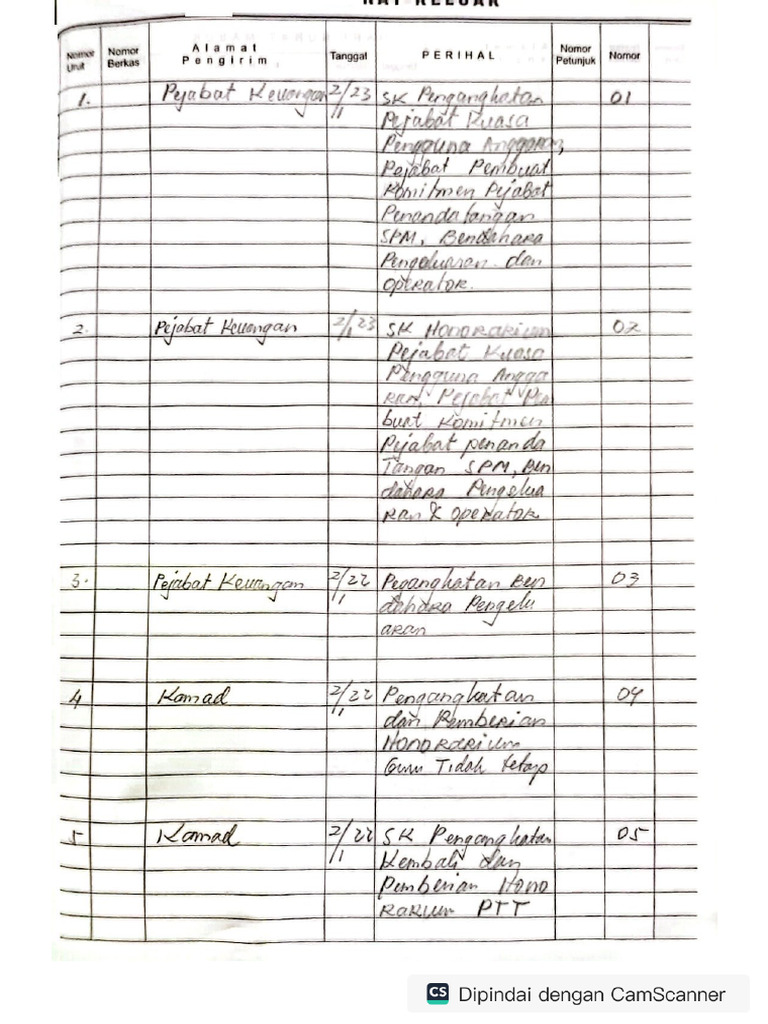 RAT KELUAR
Nomor Urut Nomor Berkas Alamat Pengirim Tanggal PERIHAL Nomor Petunjuk Nomor
1. Pejabat Keuangan 2/1 23 SK Pengangkatan 01
Pejabat Kuasa
Pengguna Anggaran,
Pejabat Pembuat
Komitmen Pejabat
Penandatangan
SPM, Bendahara
Pengeluaran dan
operator.
2. Pejabat Keuangan 2/1 23 SK Honorarium 02
Pejabat Kuasa
Pengguna Angga
ran, Pejabat Pem
buat Komitmen
Pejabat penanda
Tangan SPM, Ben
dahara Pengelua
ran & operator
3. Pejabat Keuangan 2/1 22 Pegangkatan Ben 03
dahara Pengelu
aran
4 Kamad 2/1 22 Pengangkatan 04
dan Pemberian
Honorarium
Guru Tidak tetap
5 Kamad 2/1 22 SK Pengangkatan 05
Kembali dan
Pemberian Hono
rarium PTT
CS Dipindai dengan CamScanner